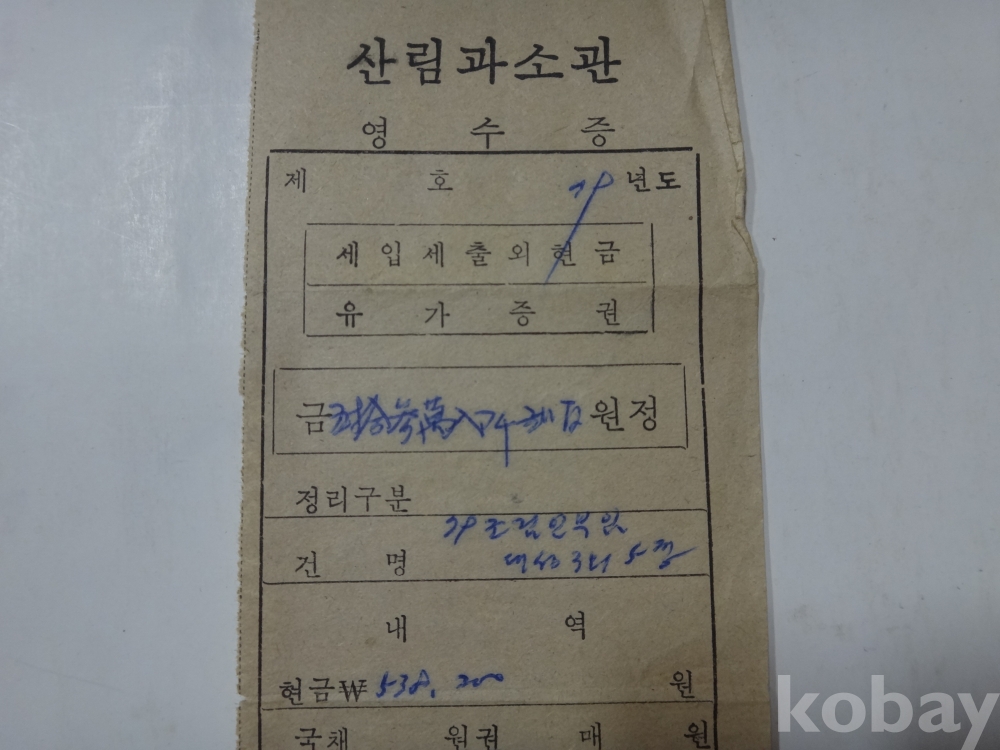 산림과소관
영 수 증
제 호 년도
세입세출외현금
유 가 증 권
금 원정
정리구분
건 명
내 역
현금₩ 538,200 원
국채 원권 매 원
kobay